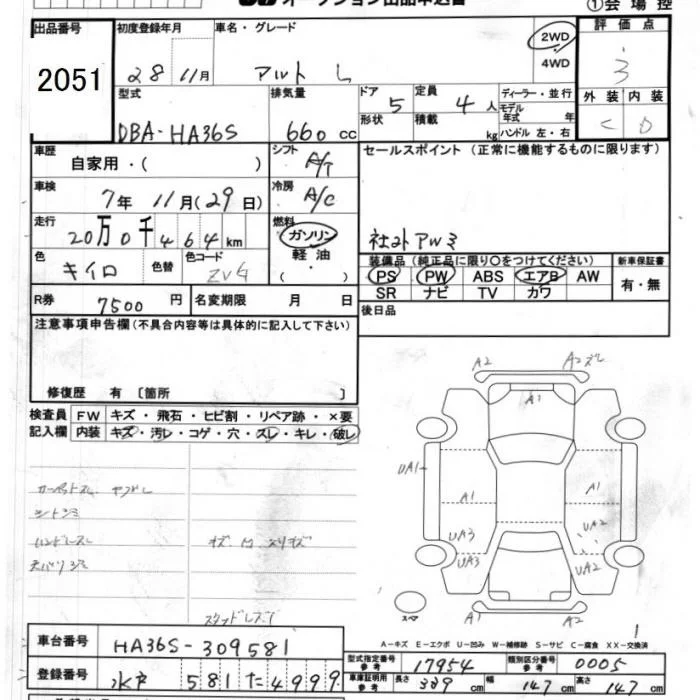 オークション出品申込書
①会場控
出品番号 2051
初度登録年月 28年11月
車名・グレード アルト L
2WD
4WD
評価点 3
外装 C 内装 D
型式 DBA-HA36S
排気量 660 cc
ドア 5
形状
定員 4人
積載 kg
ディーラー・並行
モデル年式 年式
ハンドル 左・右
車歴 自家用・( )
シフト A/T
セールスポイント(正常に機能するものに限ります)
車検 7年 11月(29日)
冷房 A/C
走行 20万0千464km
燃料 ガソリン
軽油
・( )
社外アルミ
色 キイロ 色替 色コード ZV4
装備品(純正品に限り○をつけてください)
新車保証書 有・無
PS PW ABS エアB AW
SR ナビ TV カワ
R券 7500円 名変期限 月 日
後日品
注意事項申告欄(不具合内容等は具体的に記入して下さい)
修復歴 有 〔箇所 〕
検査員記入欄
FW キズ・飛石・ヒビ割・リペア跡・×要
内装 キズ・汚レ・コゲ・穴・スレ・キレ・破レ
A2 A2ズレ
A1
UA1
A1 A1
UA3 UA2
UA3 UA2
A1 A2
スペア
A-キズ E-エクボ U-凹み W-補修跡 S-サビ C-腐食 XX-交換済
車台番号 HA36S-309581
登録番号 水戸 581 た 4999
型式指定番号 参考 17954
類別区分番号 参考 0005
車庫証明用 参考 長さ 339 cm 幅 147 cm 高さ 147 cm